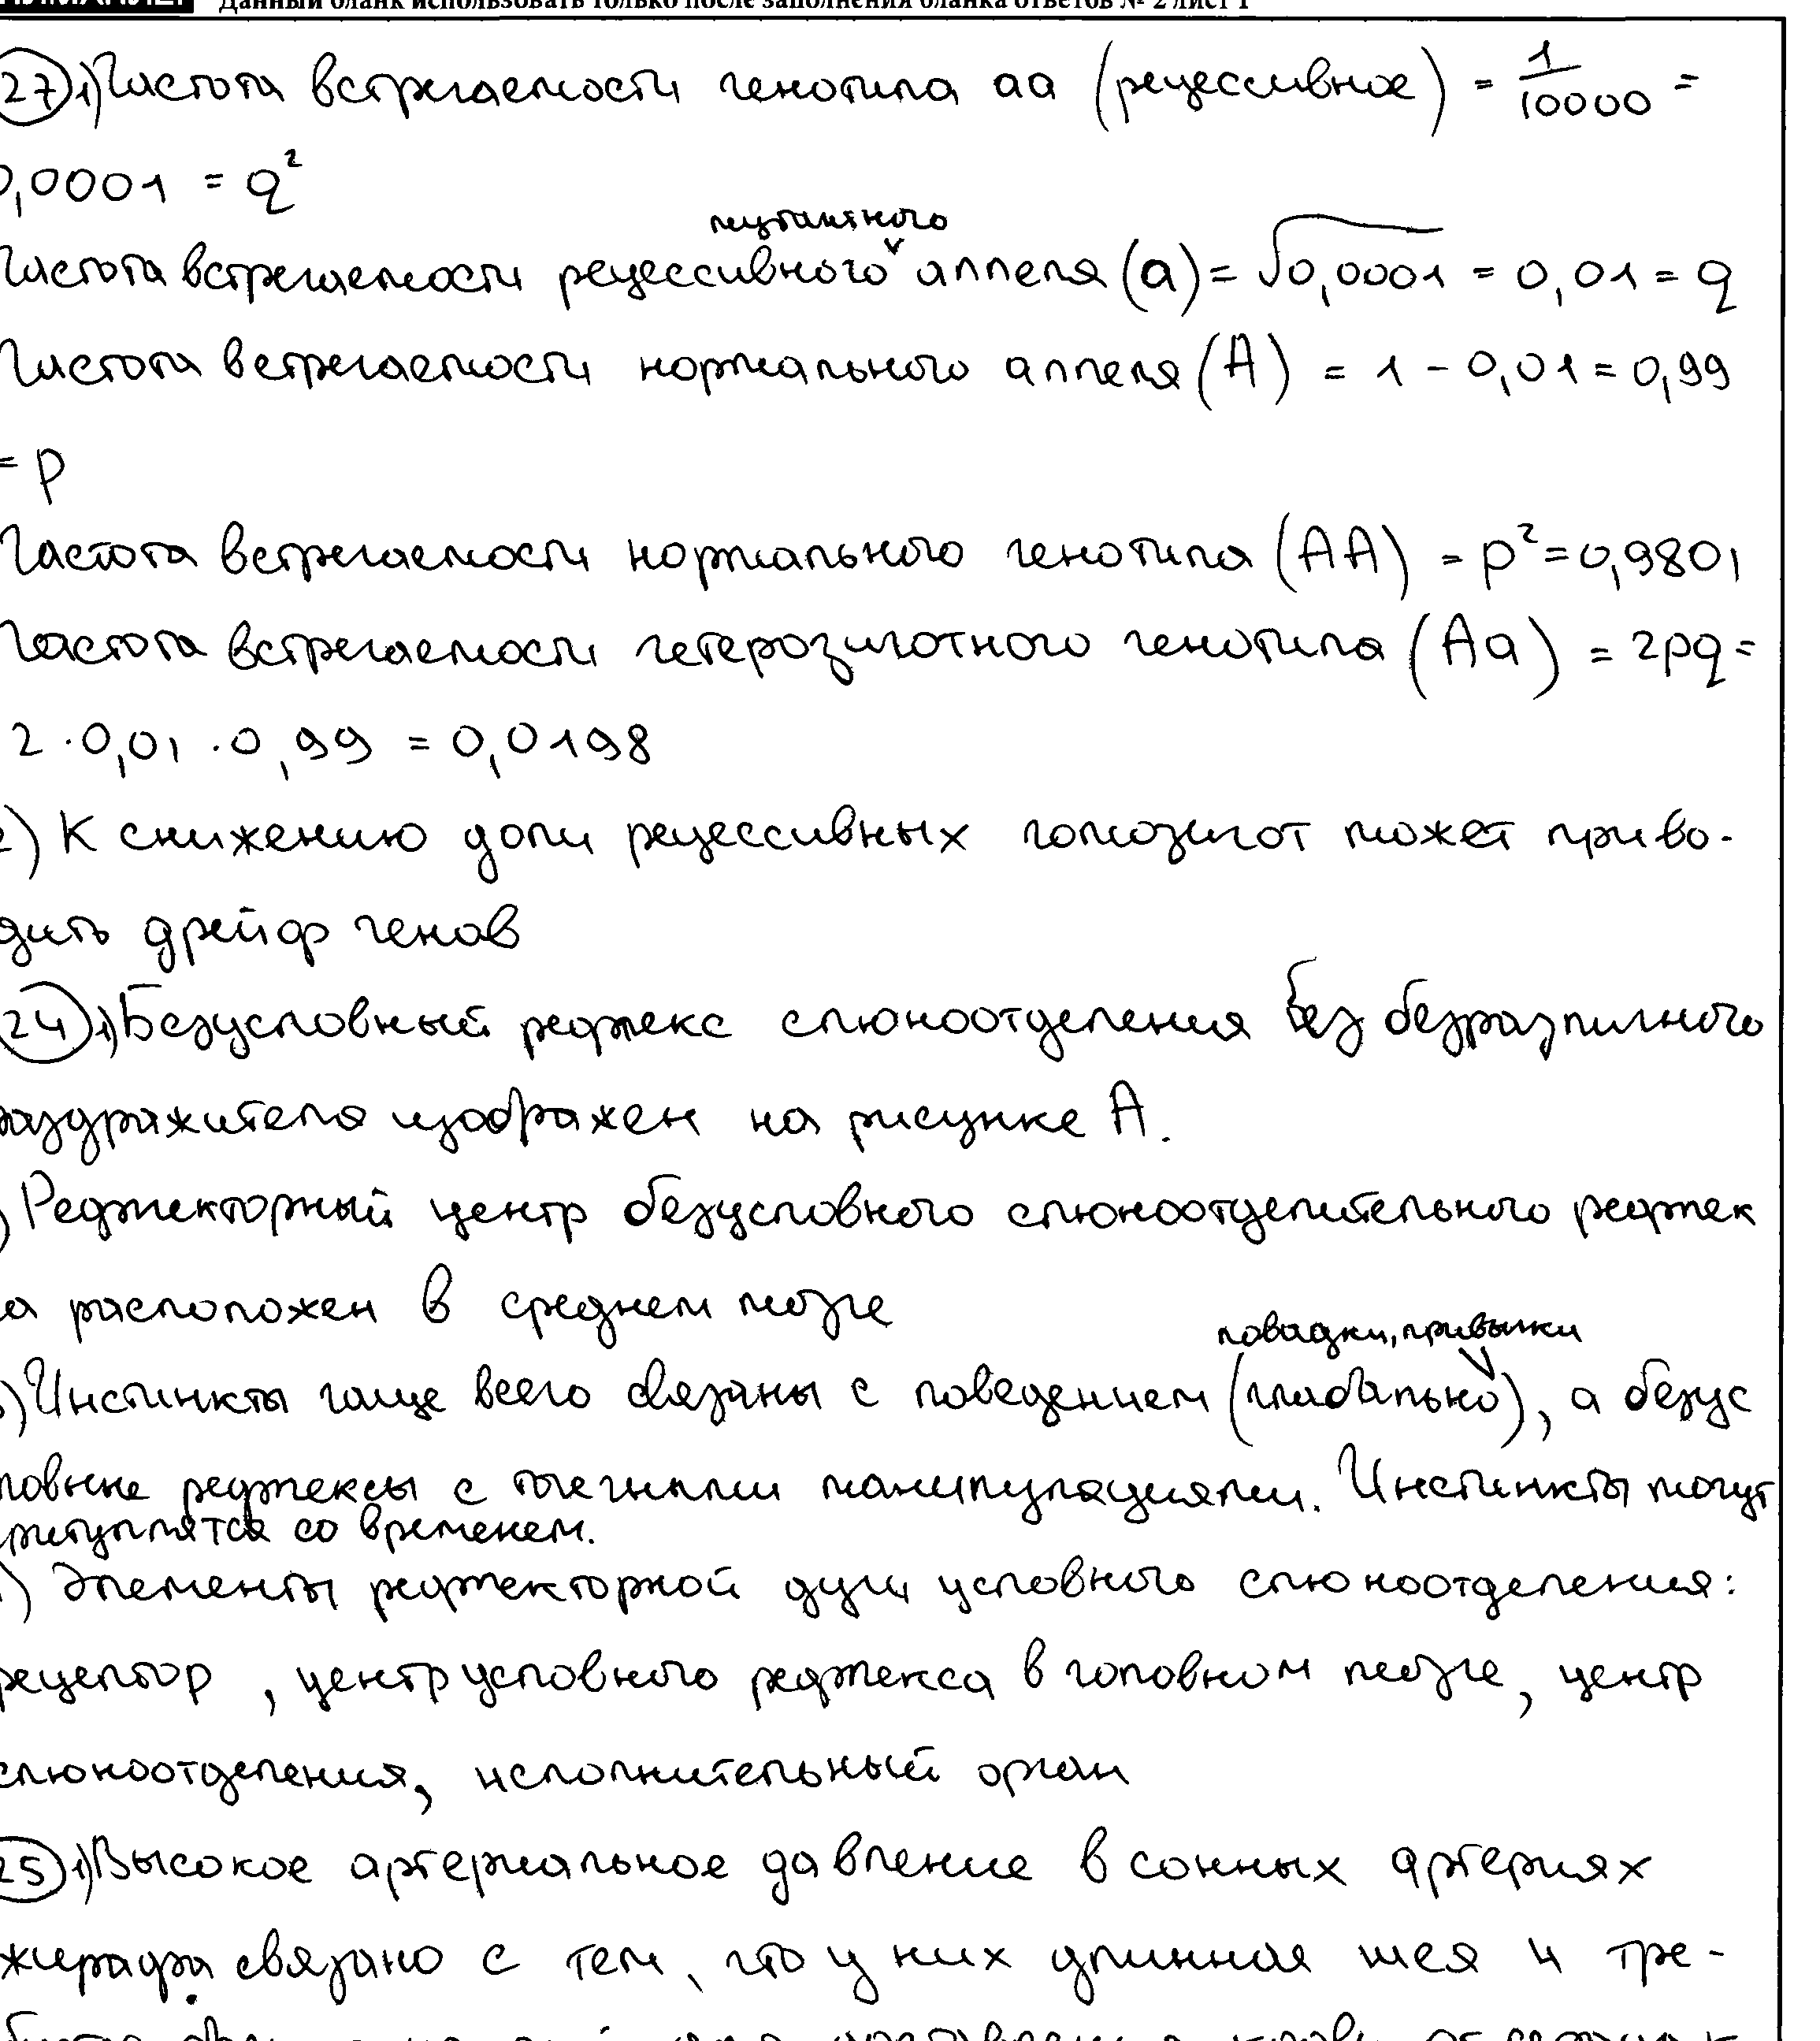 Данный бланк использовать только после заполнения бланка ответов № 2 лист 1
27 1) Частота встречаемости генотипа аа (рецессивное) = 1/10000 =
0,0001 = q²
Частота встречаемости рецессивного мутантного аллеля (а) = √0,0001 = 0,01 = q
Частота встречаемости нормального аллеля (А) = 1 - 0,01 = 0,99
= p
Частота встречаемости нормального генотипа (АА) = p² = 0,9801
Частота встречаемости гетерозиготного генотипа (Аа) = 2pq =
2 · 0,01 · 0,99 = 0,0198
2) К снижению доли рецессивных гомозигот может приво-
дить дрейф генов
24 1) Безусловный рефлекс слюноотделения без безразличного
раздражителя изображен на рисунке А.
) Рефлекторный центр безусловного слюноотделительного рефлек
а расположен в среднем мозге
) Инстинкты чаще всего связаны с поведением (глобально повадки, привычки), а безус
ловные рефлексы с точечными манипуляциями. Инстинкты могут
притуплятся со временем.
) Элементы рефлекторной дуги условного слюноотделения:
рецептор, центр условного рефлекса в головном мозге, центр
слюноотделения, исполнительный орган
25 1) Высокое артериальное давление в сонных артериях
жирафа связано с тем, что у них длинная шея и тре-